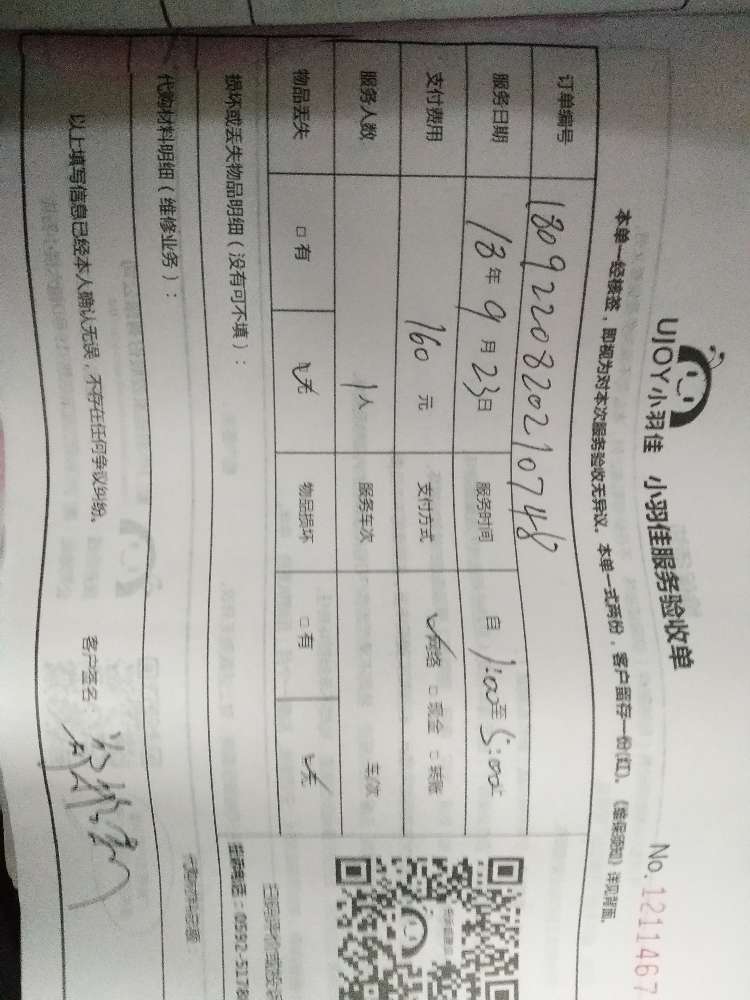 UJOY小羽佳 小羽佳服务验收单 No.1211467
本单一经核签，即视为对本次服务验收无异议。本单一式两份，客户留存一份(红)。《维保须知》详见背面。
订单编号 180922082021 0748
服务日期 18年9月23日 服务时间 自1:00至5:00止
支付费用 160元 支付方式 ☑网络 □现金 □转账
服务人数 1人 服务车次 车/次
物品丢失 □有 ☑无 物品损坏 □有 ☑无
损坏或丢失物品明细（没有可不填）：
代购材料明细（维修业务）：
以上填写信息已经本人确认无误，不存在任何争议纠纷。 客户签名
扫码评价或投诉
投诉电话：0592-5178